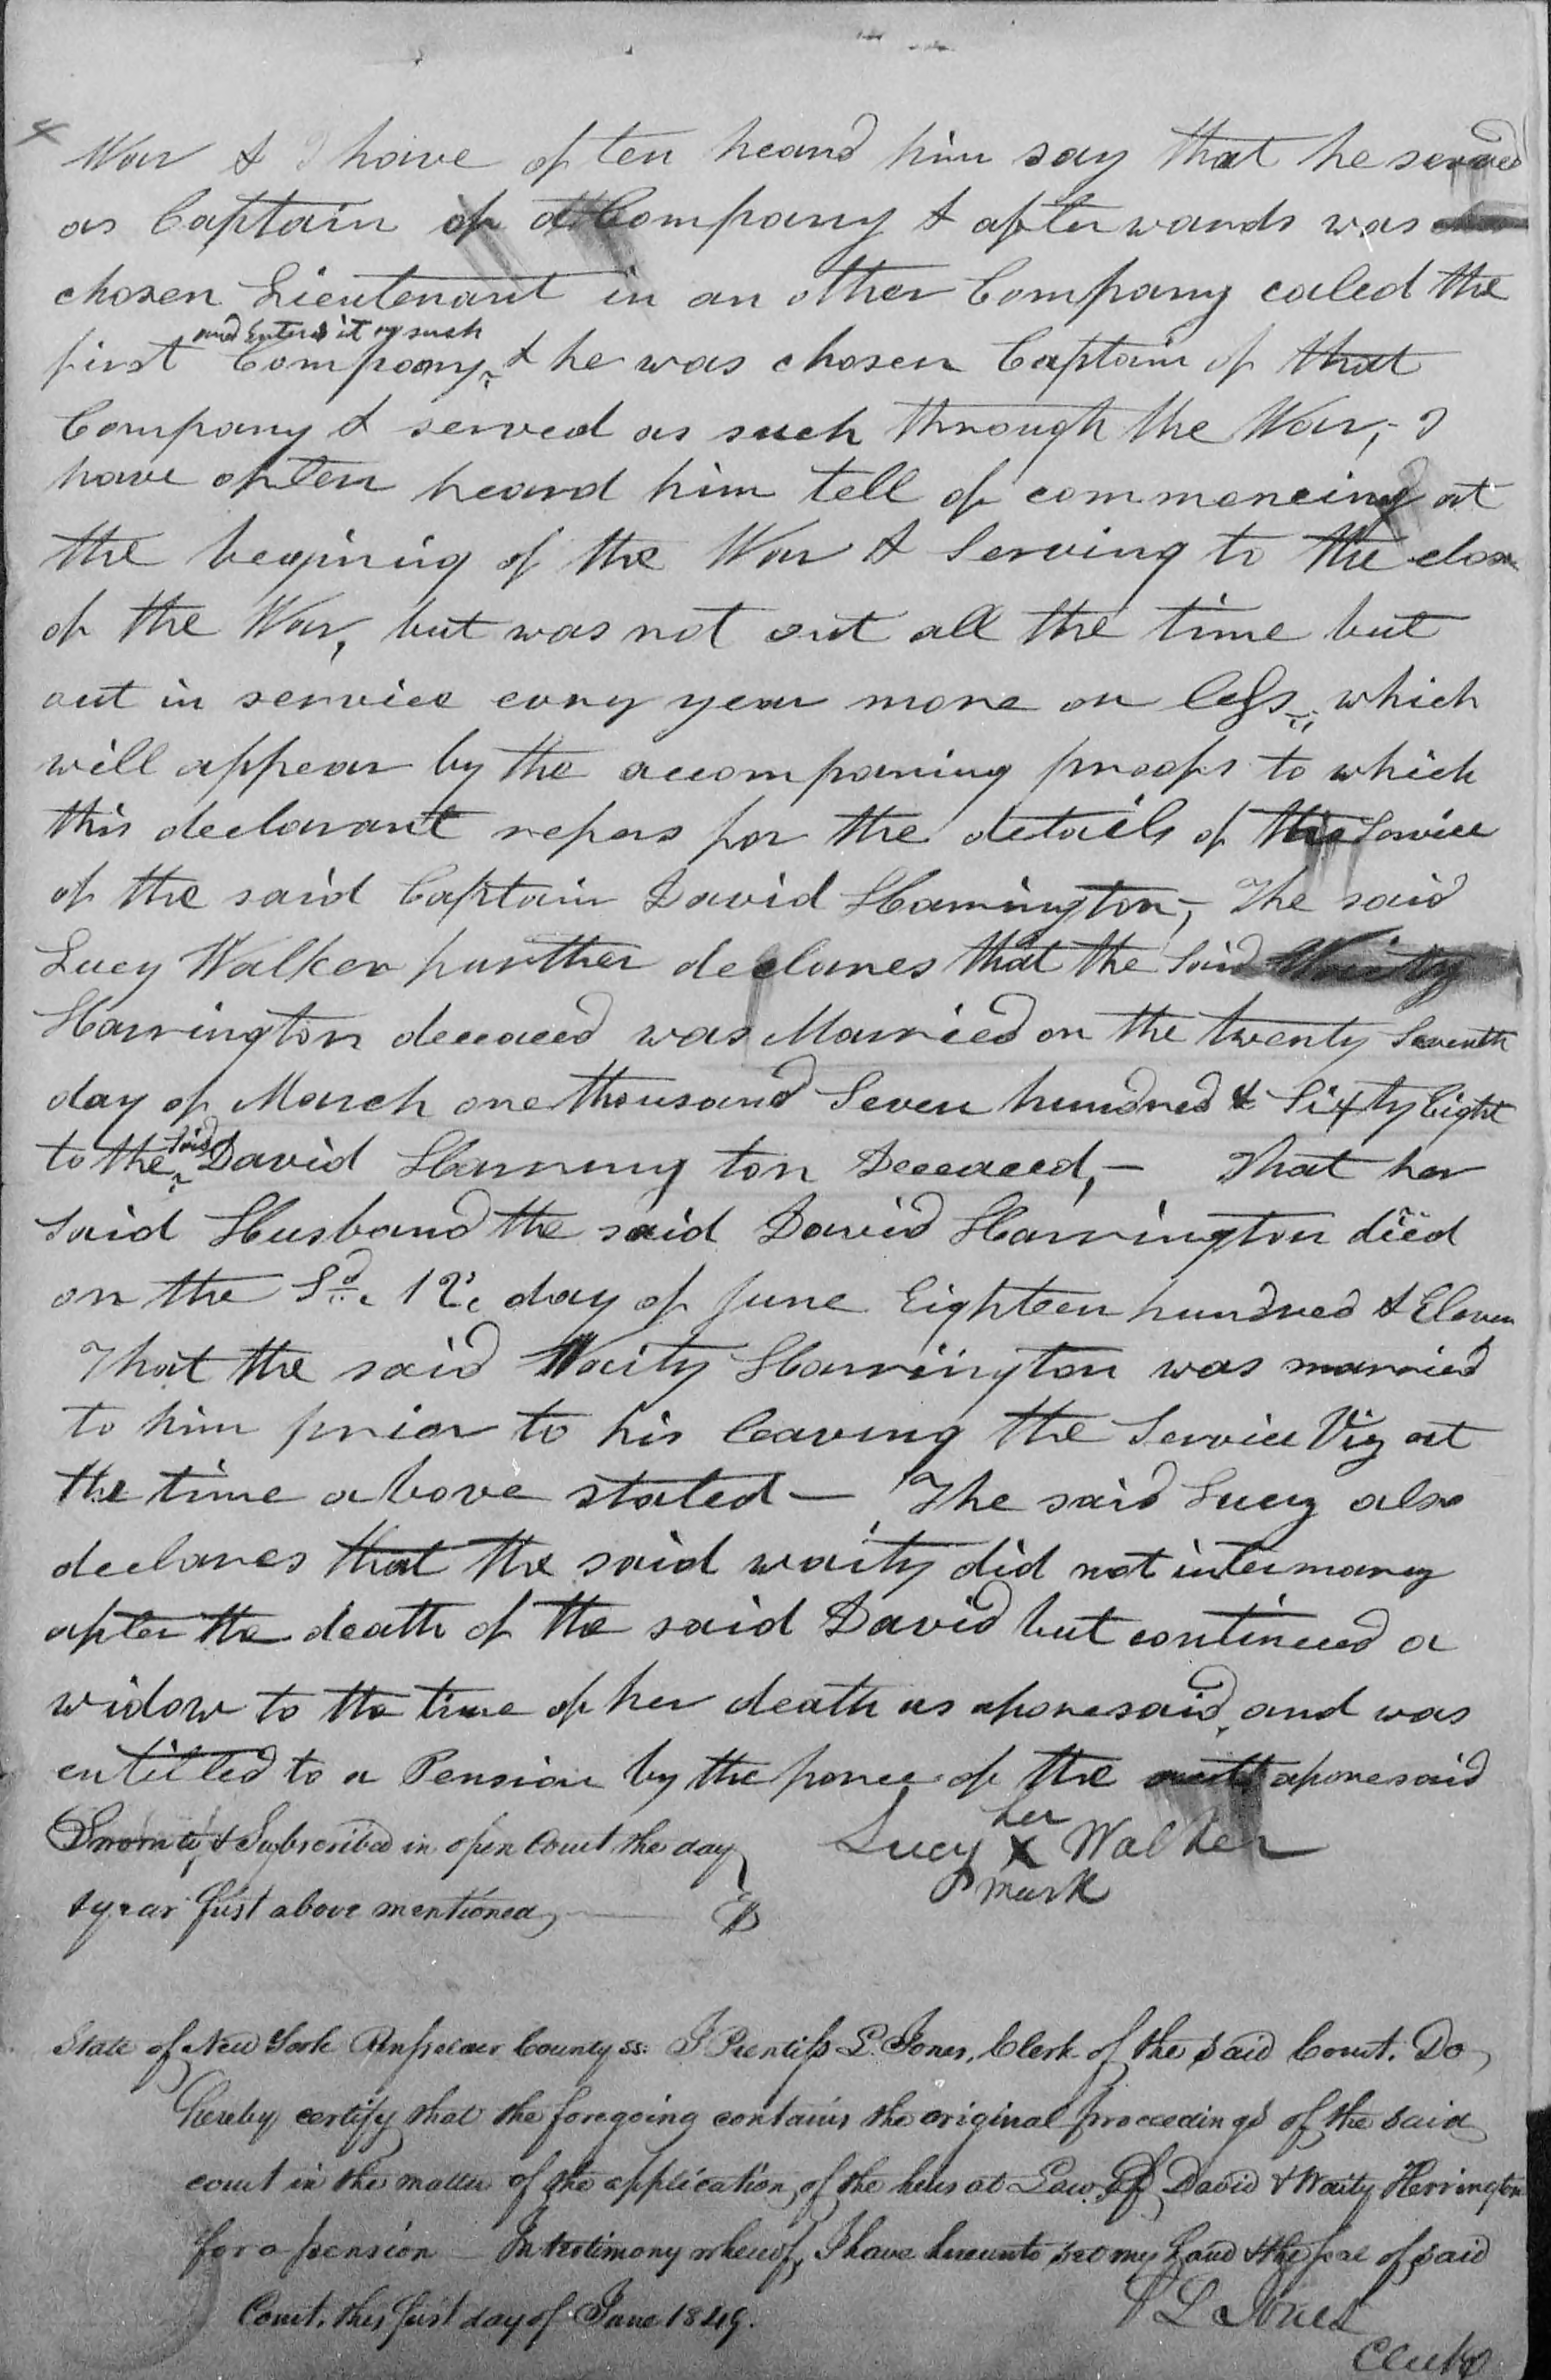 War & I have often heard him say that he served
as Captain of a Company & afterwards was
chosen Lieutenant in an other Company caled the
and Entered it as such
first Company & he was chosen Captain of that
Company & served as such through the War,- I
have often heard him tell of commencing at
the begining of the War & Serving to the close
of the War, but was not out all the time but
out in service evry year more or less which
will appear by the accompaning proofs to which
this declarant refers for the details of the Service
of the said Captain David Harrington,- The said
Lucy Walker further declares that the Said Waity
Harrington deceaced was Married on the twenty Seventh
day of March one thousand Seven hundred & Sixty Eight
to the said David Harrington Deceaced,- That her
Said Husband the said David Harrington died
on the 12 day of June Eighteen hundred & Eleven
That the said Waity Harrington was married
to him prior to his leaving the Service Viz at
the time above stated — The said Lucy also
declares that the said waity did not intermarry
after the death of the said David but continued a
widow to the time of her death as aforesaid, and was
entitled to a Pension by the force of the act aforesaid
Sworn to, & Subscribed in open Court the day
& year first above mentioned
Lucy her X mark Walker
State of New York Rensselaer County ss. I Prentiss L. Jones, Clerk of the said Court. Do
hereby certify that the foregoing contains the original proceedings of the said
court in the matter of the application of the heirs at Law of David & Waity Herrington
for a pension — In testimony whereof, I have hereunto set my hand & the seal of said
Court. this first day of June 1849.
P L Jones
Clerk